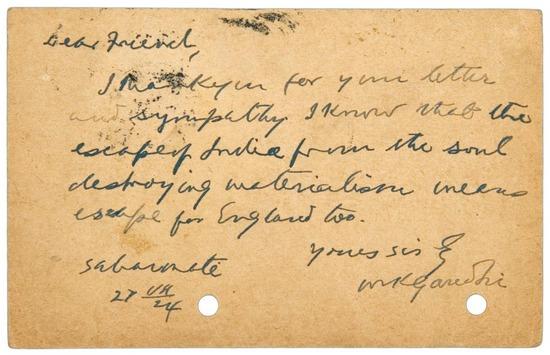 Dear Friend,
I thank you for your letter
and sympathy. I know that the
escape of India from the soul
destroying materialism means
escape for England too.
yours sincly
Sabarmate
MKGandhi
27 VII/24